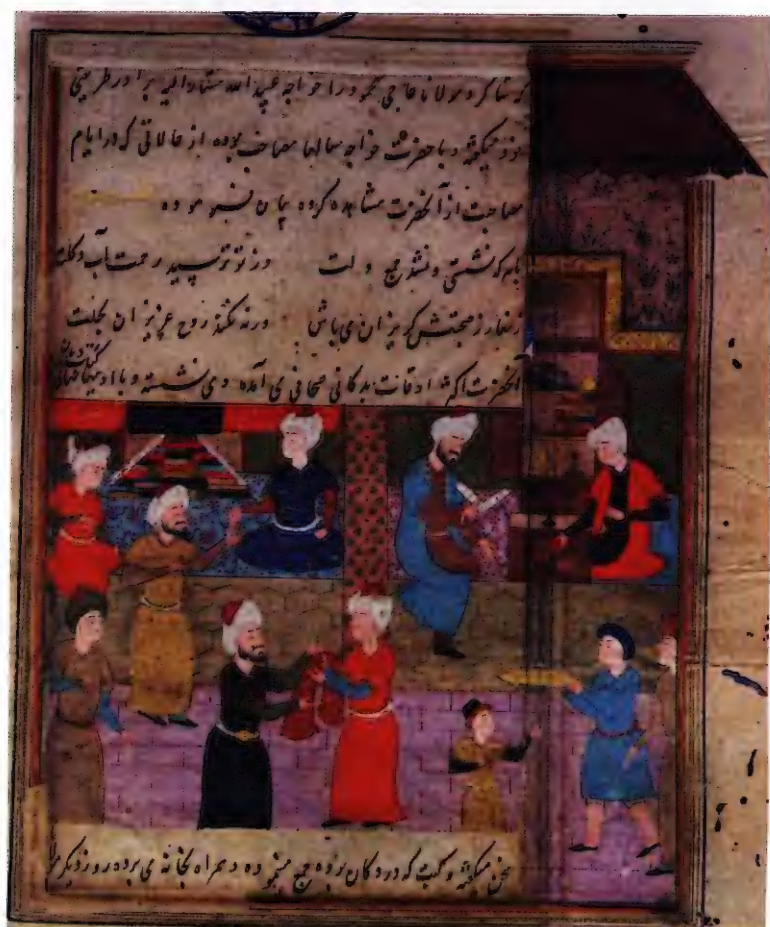 که شاکرد مولانا حاجی محمود را خواجه عبد الله مشار الیه برادر طریقتی
خود میگفته و با حضرت خواجه سالها مصاحب بوده از حالاتی که در ایام
مصاحبت از آنحضرت مشاهده کرده بیان نموده
با هر که نشستی و نشد جمع دلت وز تو نرمید زحمت آب و گلت
زنهار ز صحبتش گریزان می باش ورنه نکند روح عزیزان بحلت
آنحضرت اکثر اوقات بدکانی صحافی می آمده و می نشسته و با او
سخن میگفته و کتب که در دکان بوده جمع مینموده و همراه بخانه می برده روز دیگر